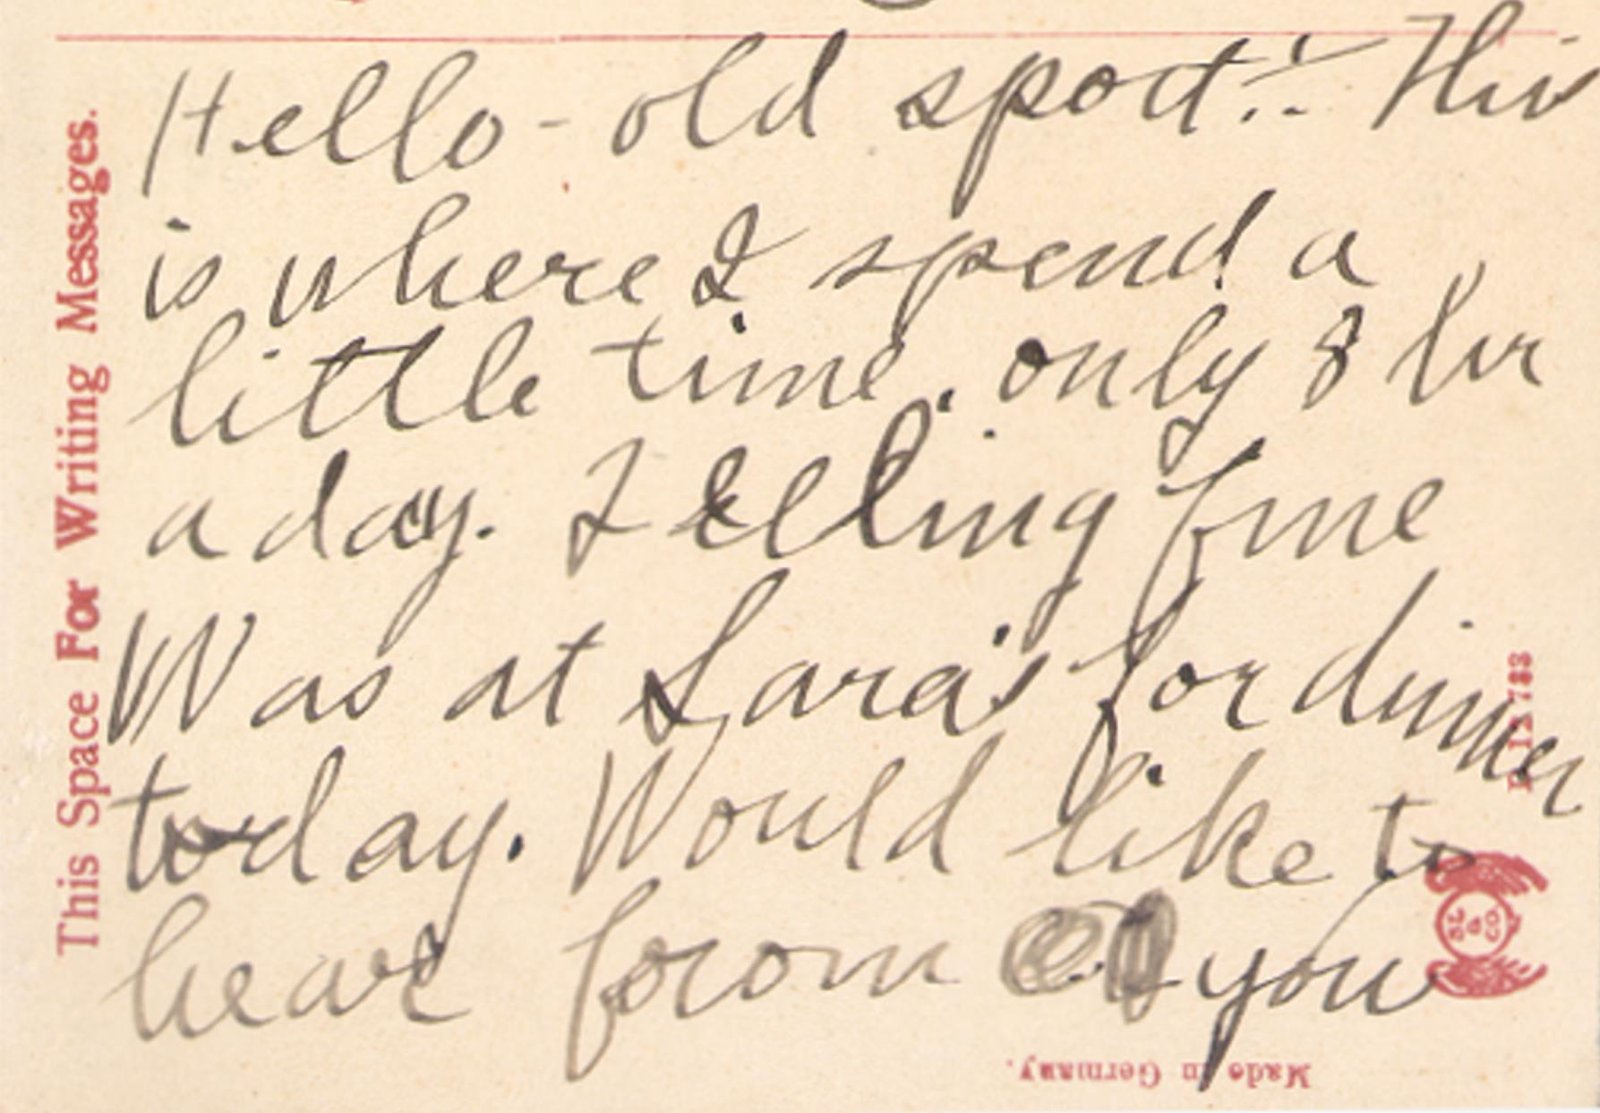 Hello - old sport!! This
is where I spend a
little time. only 8 hr
a day. Feeling fine
Was at Sara's for dinner
today. Would like to
hear from you
This Space For Writing Messages.
Made in Germany.